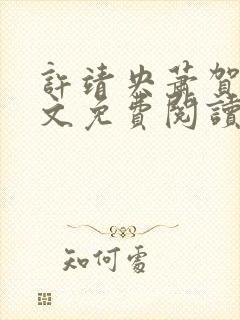 許靖央蕭賀
文免費閱讀
知何處